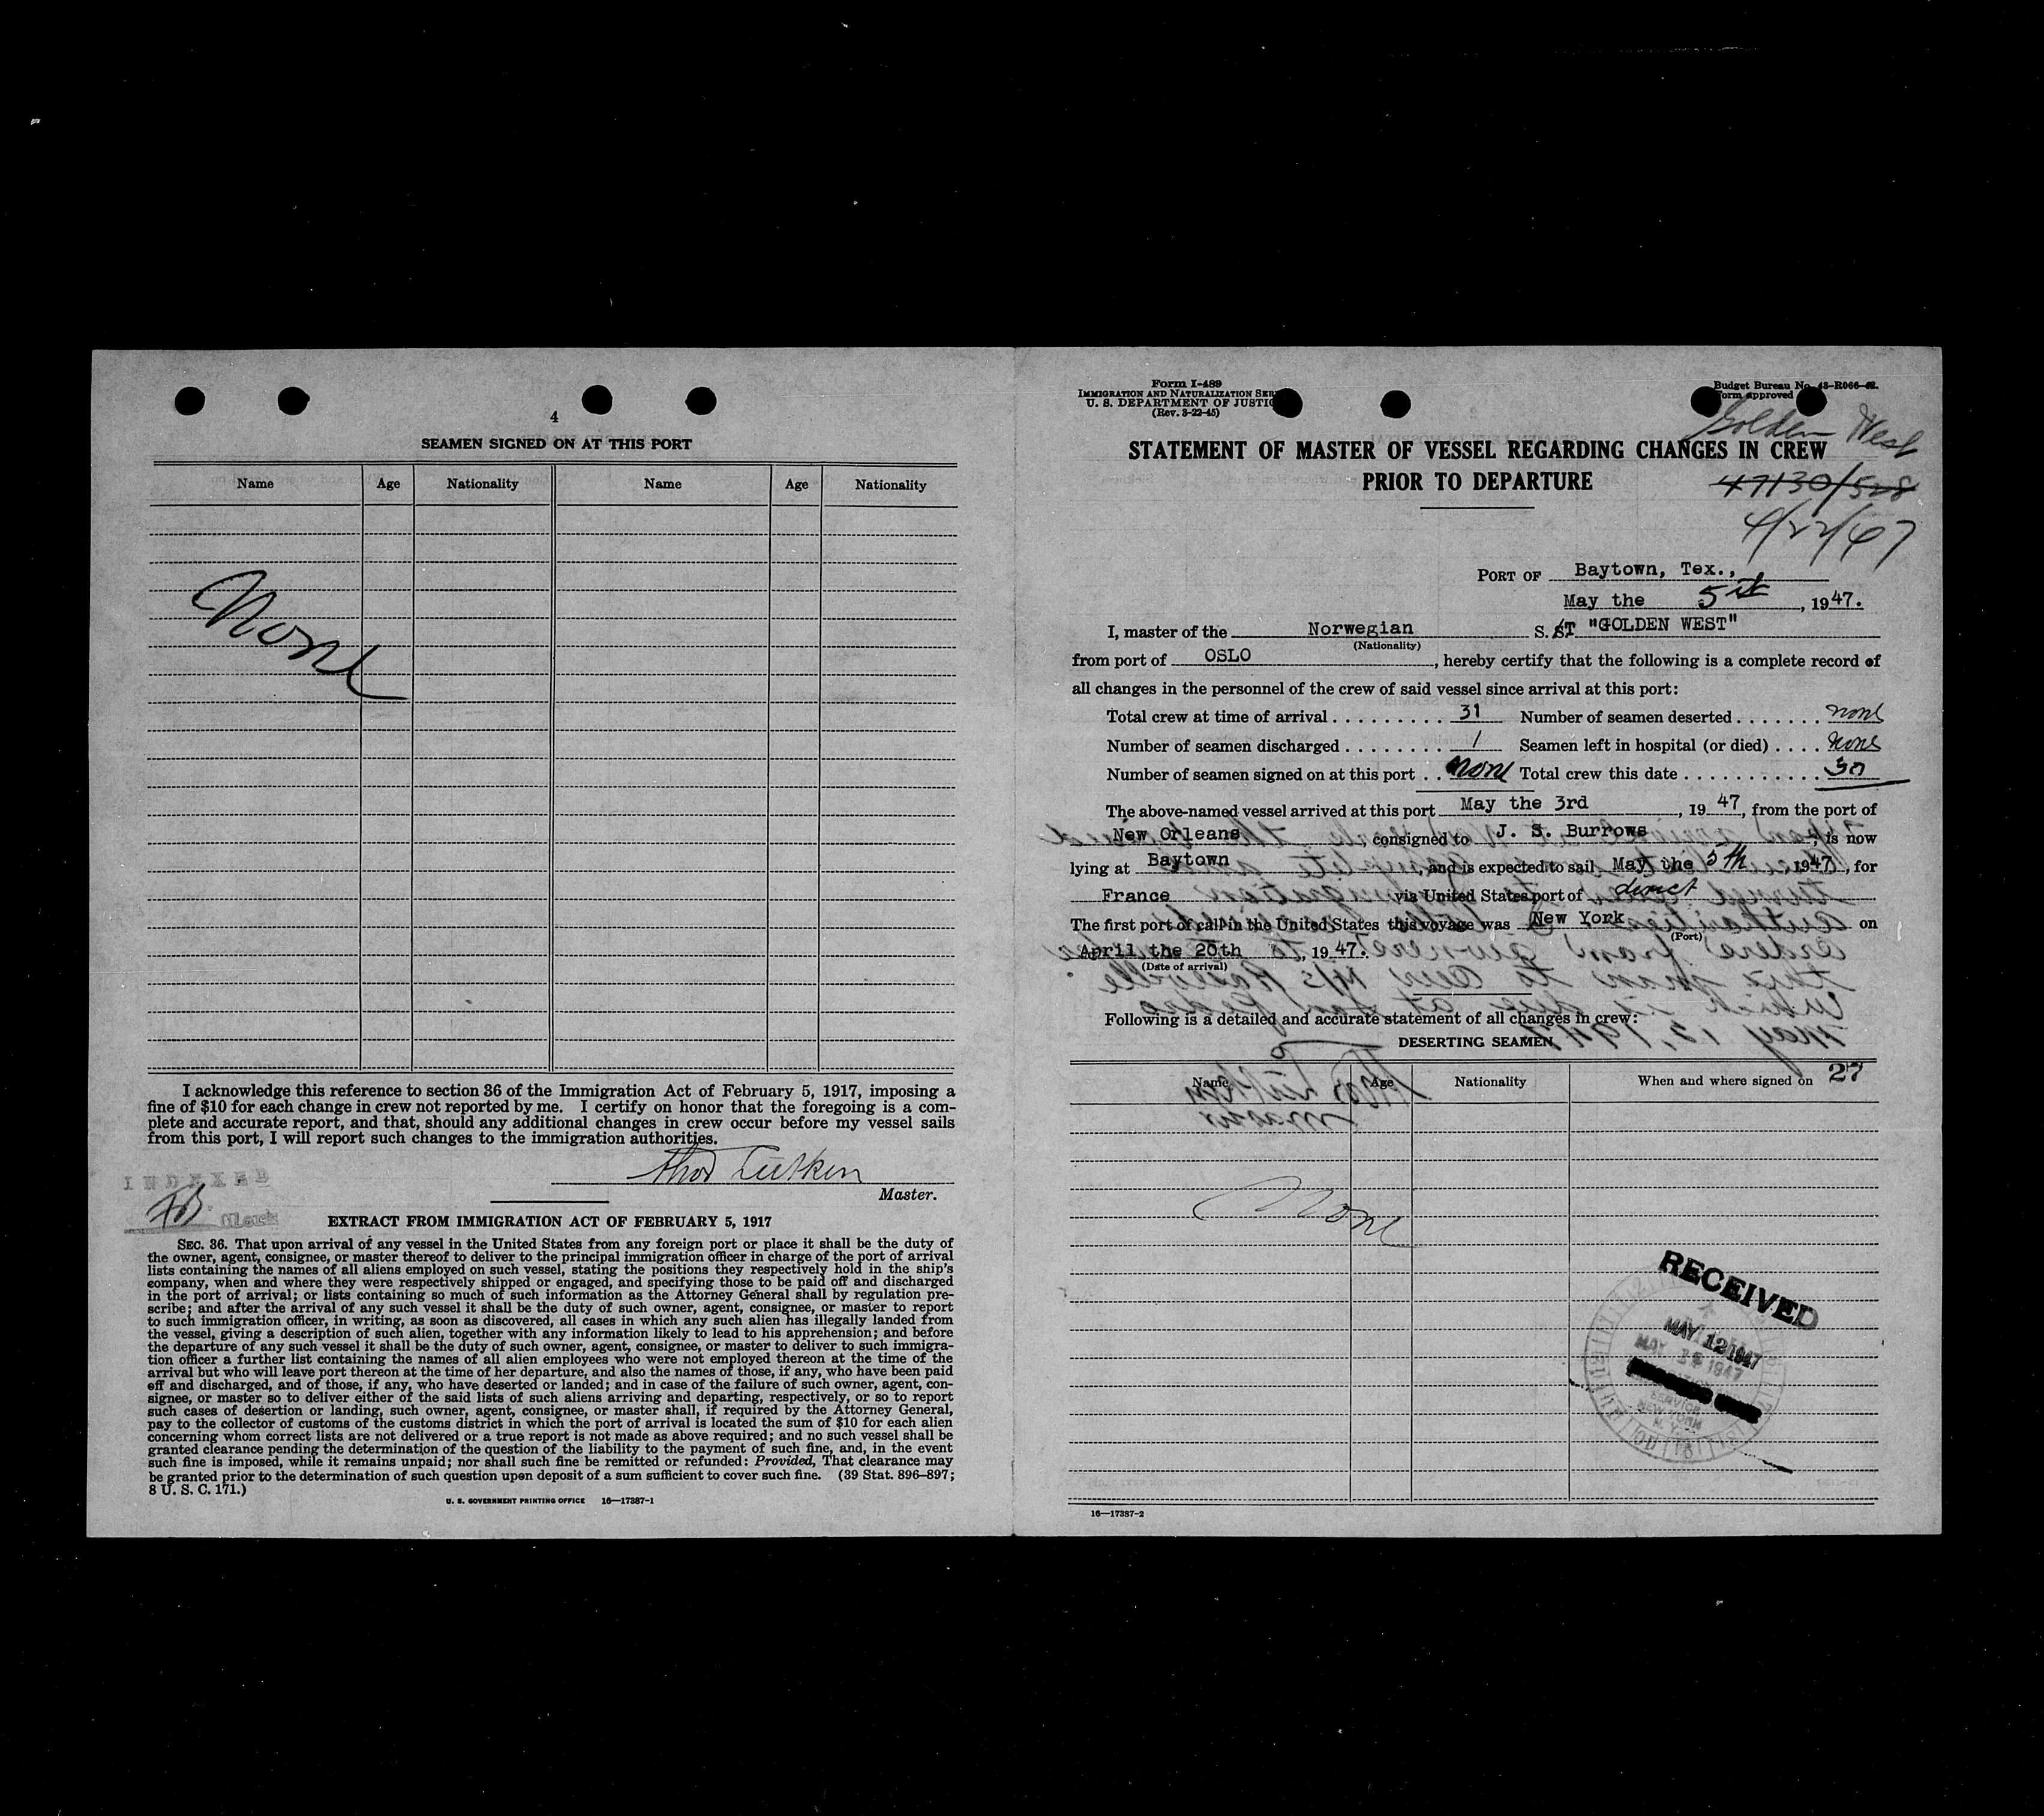 4
SEAMEN SIGNED ON AT THIS PORT
Name Age Nationality Name Age Nationality
None
I acknowledge this reference to section 36 of the Immigration Act of February 5, 1917, imposing a
fine of $10 for each change in crew not reported by me. I certify on honor that the foregoing is a com-
plete and accurate report, and that, should any additional changes in crew occur before my vessel sails
from this port, I will report such changes to the immigration authorities.
Master.
INDEXED
Clerk
EXTRACT FROM IMMIGRATION ACT OF FEBRUARY 5, 1917
SEC. 36. That upon arrival of any vessel in the United States from any foreign port or place it shall be the duty of
the owner, agent, consignee, or master thereof to deliver to the principal immigration officer in charge of the port of arrival
lists containing the names of all aliens employed on such vessel, stating the positions they respectively hold in the ship's
company, when and where they were respectively shipped or engaged, and specifying those to be paid off and discharged
in the port of arrival; or lists containing so much of such information as the Attorney General shall by regulation pre-
scribe; and after the arrival of any such vessel it shall be the duty of such owner, agent, consignee, or master to report
to such immigration officer, in writing, as soon as discovered, all cases in which any such alien has illegally landed from
the vessel, giving a description of such alien, together with any information likely to lead to his apprehension; and before
the departure of any such vessel it shall be the duty of such owner, agent, consignee, or master to deliver to such immigra-
tion officer a further list containing the names of all alien employees who were not employed thereon at the time of the
arrival but who will leave port thereon at the time of her departure, and also the names of those, if any, who have been paid
off and discharged, and of those, if any, who have deserted or landed; and in case of the failure of such owner, agent, con-
signee, or master so to deliver either of the said lists of such aliens arriving and departing, respectively, or so to report
such cases of desertion or landing, such owner, agent, consignee, or master shall, if required by the Attorney General,
pay to the collector of customs of the customs district in which the port of arrival is located the sum of $10 for each alien
concerning whom correct lists are not delivered or a true report is not made as above required; and no such vessel shall be
granted clearance pending the determination of the question of the liability to the payment of such fine, and, in the event
such fine is imposed, while it remains unpaid; nor shall such fine be remitted or refunded: Provided, That clearance may
be granted prior to the determination of such question upon deposit of a sum sufficient to cover such fine. (39 Stat. 896–897;
8 U. S. C. 171.)
U. S. GOVERNMENT PRINTING OFFICE 16—17387-1
Form I-489
IMMIGRATION AND NATURALIZATION SER
U. S. DEPARTMENT OF JUSTIC
(Rev. 3-22-45)
Budget Bureau No. 43-R066-42.
Form approved
Golden West
STATEMENT OF MASTER OF VESSEL REGARDING CHANGES IN CREW
PRIOR TO DEPARTURE
47130/528
4/22/47
PORT OF Baytown, Tex.,
May the 5th, 1947.
I, master of the Norwegian S. ST "GOLDEN WEST"
(Nationality)
from port of OSLO, hereby certify that the following is a complete record of
all changes in the personnel of the crew of said vessel since arrival at this port:
Total crew at time of arrival . . . . . . . . . 31 Number of seamen deserted . . . . . . . none
Number of seamen discharged . . . . . . . . 1 Seamen left in hospital (or died) . . . . none
Number of seamen signed on at this port . . none Total crew this date . . . . . . . . . . . . 30
The above-named vessel arrived at this port May the 3rd, 1947, from the port of
New Orleans, consigned to J. S. Burrows, is now
lying at Baytown, and is expected to sail May the 5th, 1947, for
France via United States port of direct
The first port of call in the United States this voyage was New York on
(Port)
April the 20th, 1947.
(Date of arrival)
Following is a detailed and accurate statement of all changes in crew:
DESERTING SEAMEN
Name Age Nationality When and where signed on 27
None
RECEIVED
MAY 12 1947
NEW YORK
16—17387-2